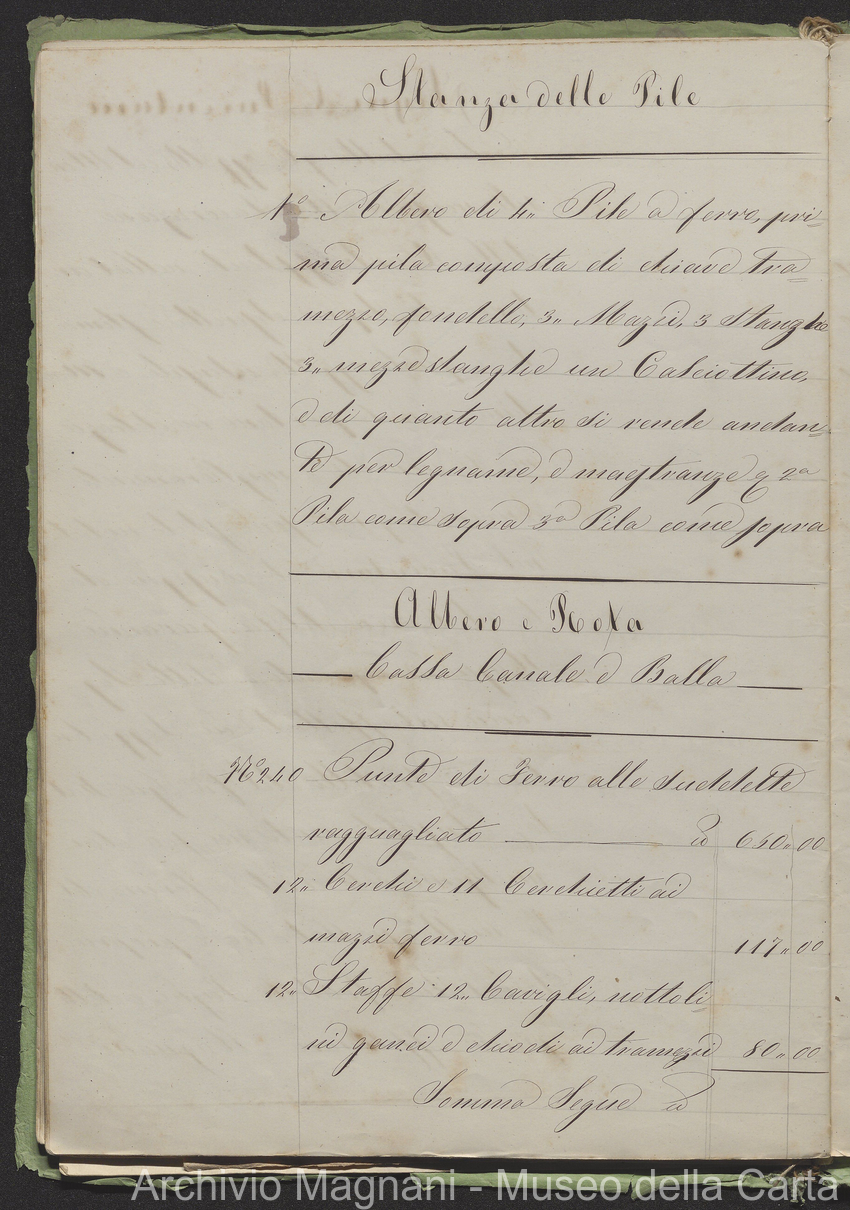 Stanza delle Pile
1° Albero di 4" Pile a ferro, pri=
ma pila composta di chiave tra=
mezzo, fondello, 3" Mazzi, 3 stanghe
3" mezze stanghe un Calciottino,
e di quanto altro si rende andan=
te per legname, e maestranze e 2a
Pila come sopra 3a Pila come sopra
Albero e Rota
Cassa Canale e Balla
N° 240 Punte di Ferro alle suddette
ragguagliato a 650"00
12" Cerchi e 11 Cerchietti ai
mazzi ferro 117"00
12" Staffe 12" Cavigli, nottoli=
ni ganci e chiodi ai tramezzi 80"00
Somma Segue a
Archivio Magnani - Museo della Carta